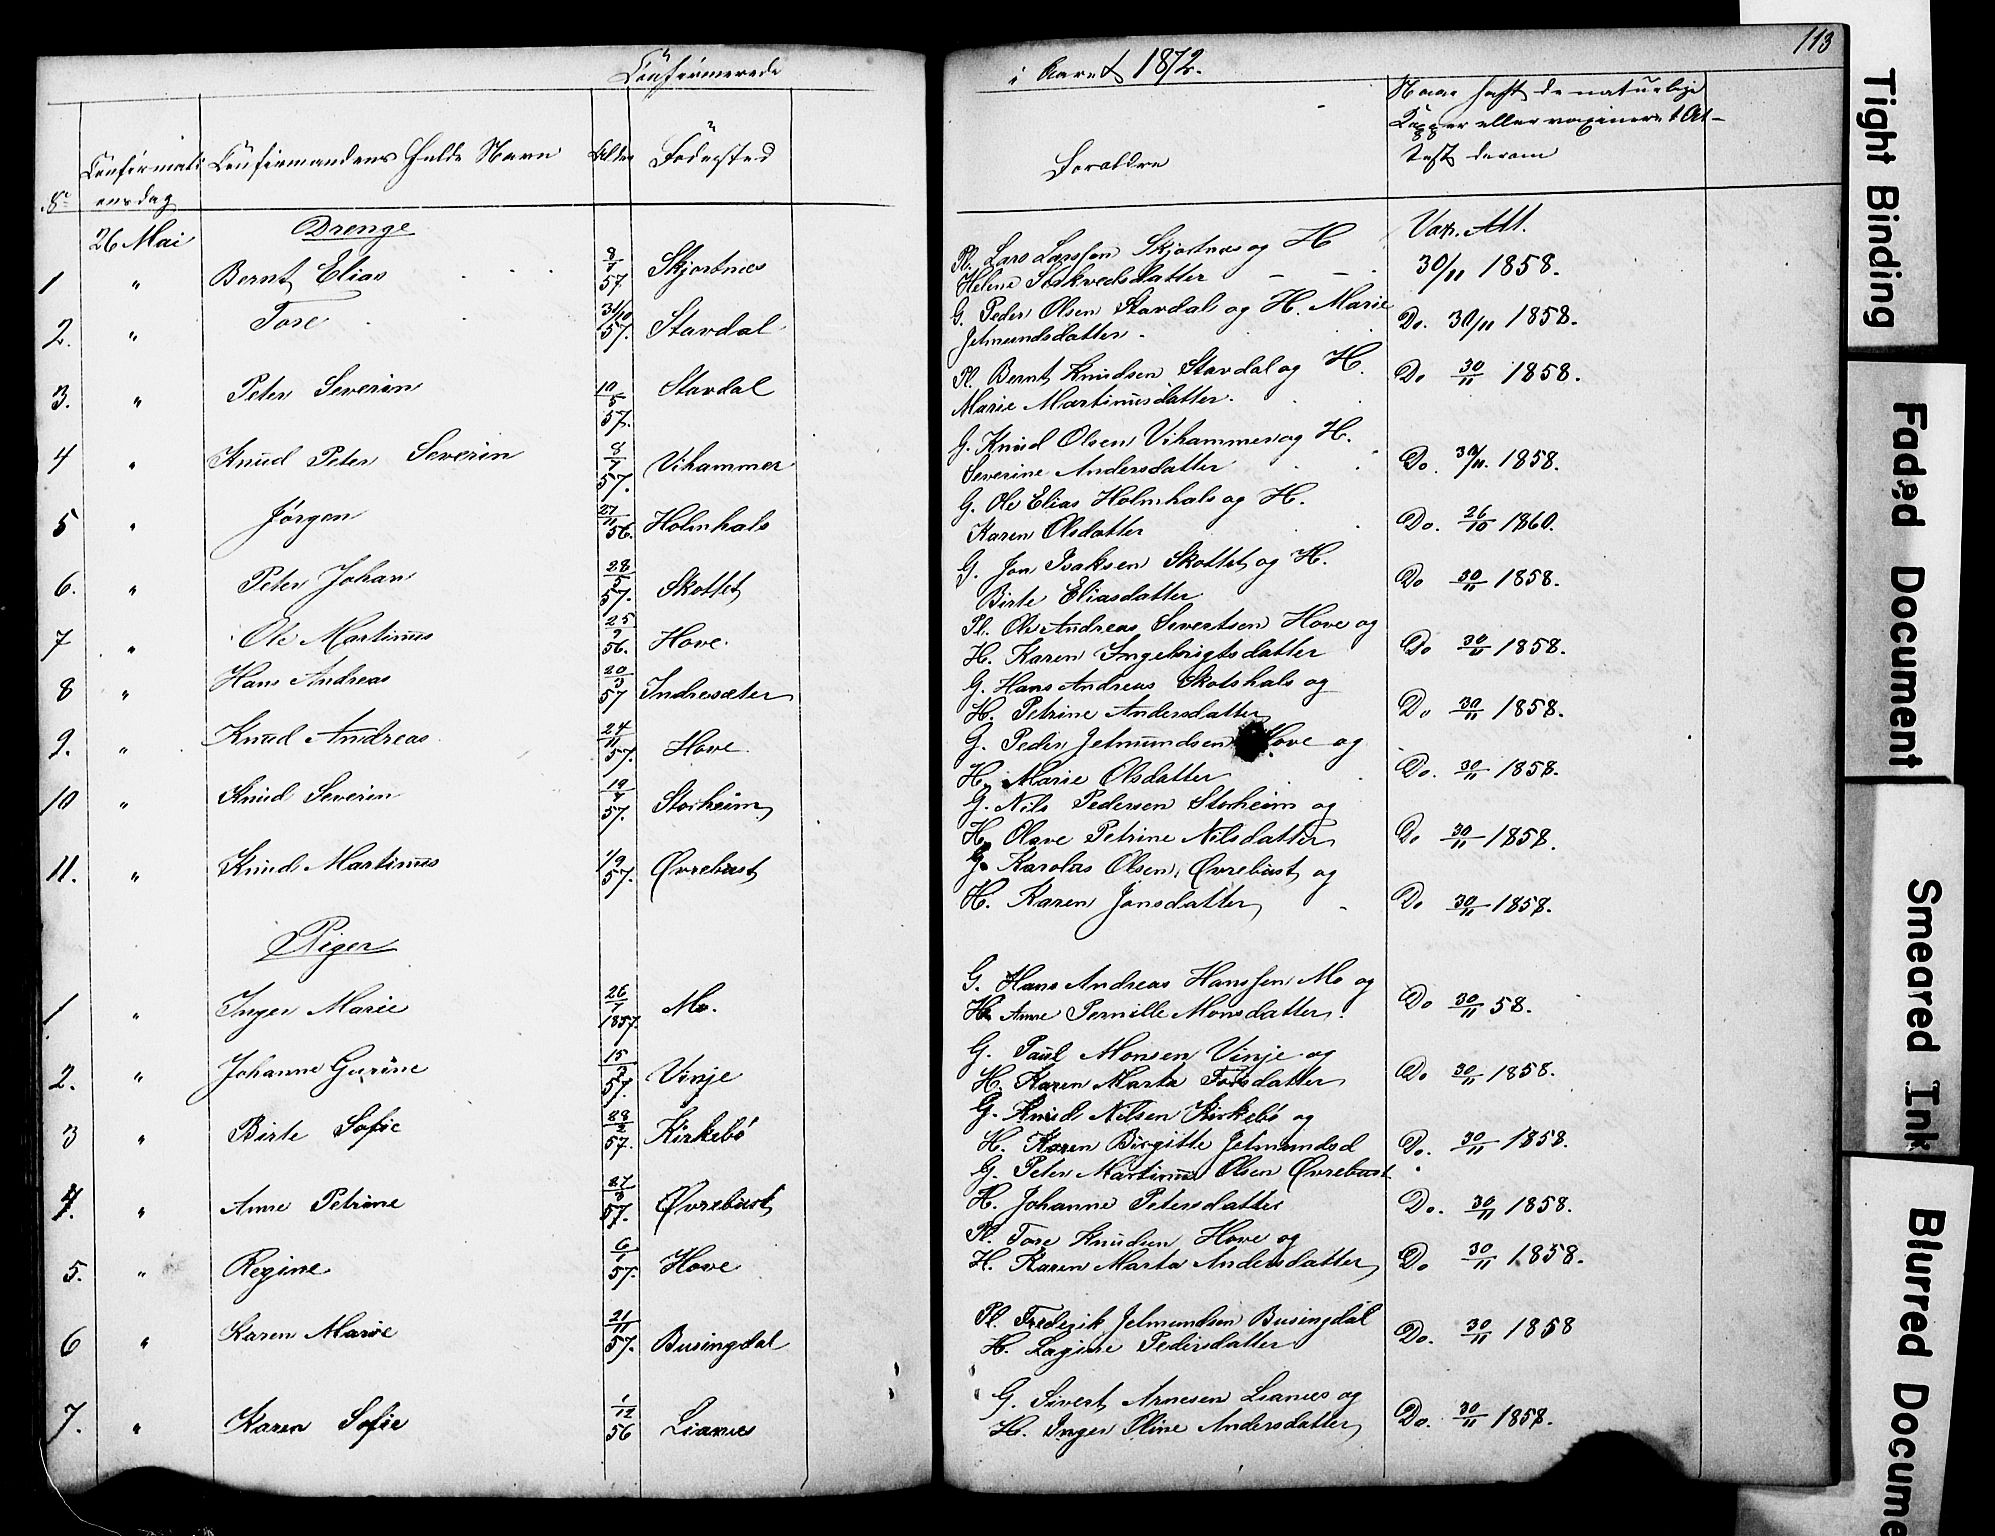 Confirmerede
i Aaret 1872.
113
No
Confirmati-
onsdag
Confirmandens fulde Navn
Alder
Födested
Forældre
Naar havt de naturlige
Kopper eller vaxineret At-
test derom
26 Mai
Drenge
Vax. Att.
1 " Bernt Elias 8/7 57. Skjortnes Pl. Lars Larssen Skjortnes og H Helene Torkvedsdatter 30/11 1858.
2. " Tore 31/10 57. Stavdal G. Peder Olsen Stavdal og H. Marie Jetmundsdatter. Do. 30/11 1858.
3. " Peter Severin 10/5 57. Stavdal Pl. Bernt Knudsen Stavdal og H. Marie Martinusdatter. Do 30/11 1858.
4 " Knud Peter Severin 8/7 57. Vihammer G. Knud Olsen Vihammer og H. Severine Andersdatter Do. 30/11. 1858.
5 " Jørgen 27/11 56. Holmhals G. Ole Elias Holmhals og H. Karen Olsdatter Do. 26/10 1860.
6. " Peter Johan 28/5 57. Skottet G. Jon Isaksen Skottet og H. Birte Eliasdatter Do 30/11 1858.
7 " Ole Martinus 25/9 56. Hove. Pl. Ole Andreas Severtsen Hove og H. Karen Ingebrigtsdatter Do 30/11 1858.
8 " Hans Andreas 20/3 57 Indresæter G. Hans Andreas Skotshals og H. Petrine Andersdatter Do 30/11 1858.
9. " Knud Andreas 24/11 57. Hove. G. Peder Jetmundsen Hove og H. Marie Olsdatter Do. 30/11 1858.
10 " Knud Severin 19/7 57. Storheim G. Nils Pedersen Storheim og H. Olave Petrine Nilsdatter Do 30/11 1858.
11. " Knud Martinus 1/9 57. Øvrebust G. Karolus Olsen Øvrebust og H. Karen Jonsdatter Do 30/11 1858.
Piger
1 " Inger Marie 26/7 1857. Mo. G. Hans Andreas Hanssen Mo og H. Anne Pernille Monsdatter. Do 30/11 58.
2. " Johanne Gurine 15/7 57. Vinje G. Paul Monsen Vinje og H. Karen Marta Toresdatter Do 30/11 1858.
3 " Birte Sofie 28/2 57. Kirkebö G. Knud Nilsen Kirkebö og H. Karen Birgitte Jetmundsd Do. 30/11 1858.
4. " Anne Petrine 27/3 57. Øvrebust G. Peter Martinus Olsen Øvrebust H. Johanne Petersdatter Do. 30/11 1858.
5. " Regine 6/1 57. Hove Pl. Tore Knudsen Hove og H. Karen Marta Andersdatter Do 30/11 1858.
6 " Karen Marie 21/11 57. Busingdal Pl. Frederik Jetmundsen Busingdal H. Lagine Pedersdatter Do. 30/11 1858
7. " Karen Sofie 1/12 56 Lianes G. Sivert Arnesen Lianes og H. Inger Oline Andersdatter Do. 30/11 1858.
Tight Binding
Faded Document
Smeared Ink
Blurred Docume